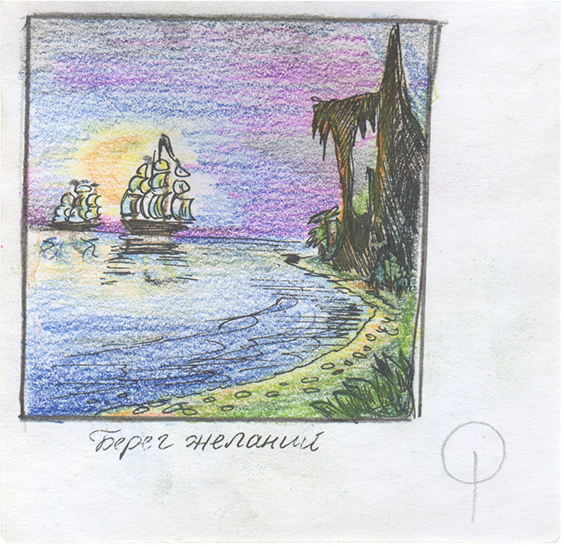 Берег желаний